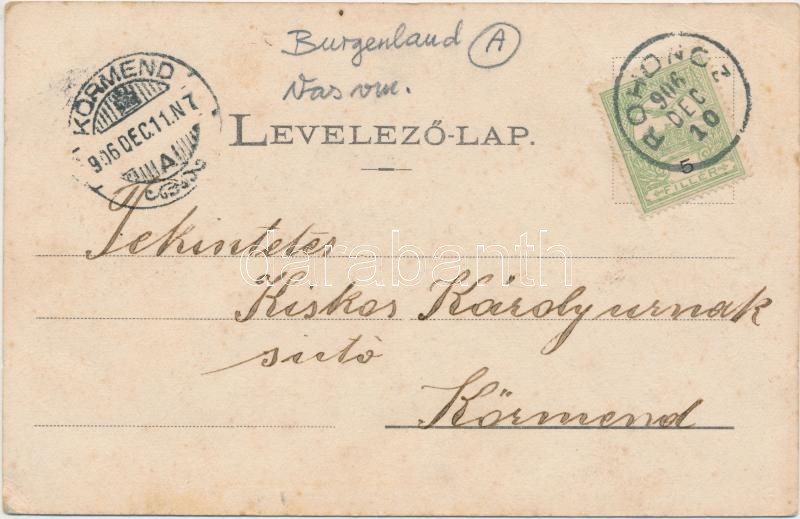 Burgenland A
Vas vm.
KÖRMEND
906 DEC. 11. N 7
A
ROHONC
906
DEC
10
5
FILLÉR
LEVELEZŐ-LAP.
Tekintetes
darabanth
Kiskos Károly urnak
sütő
Körmend